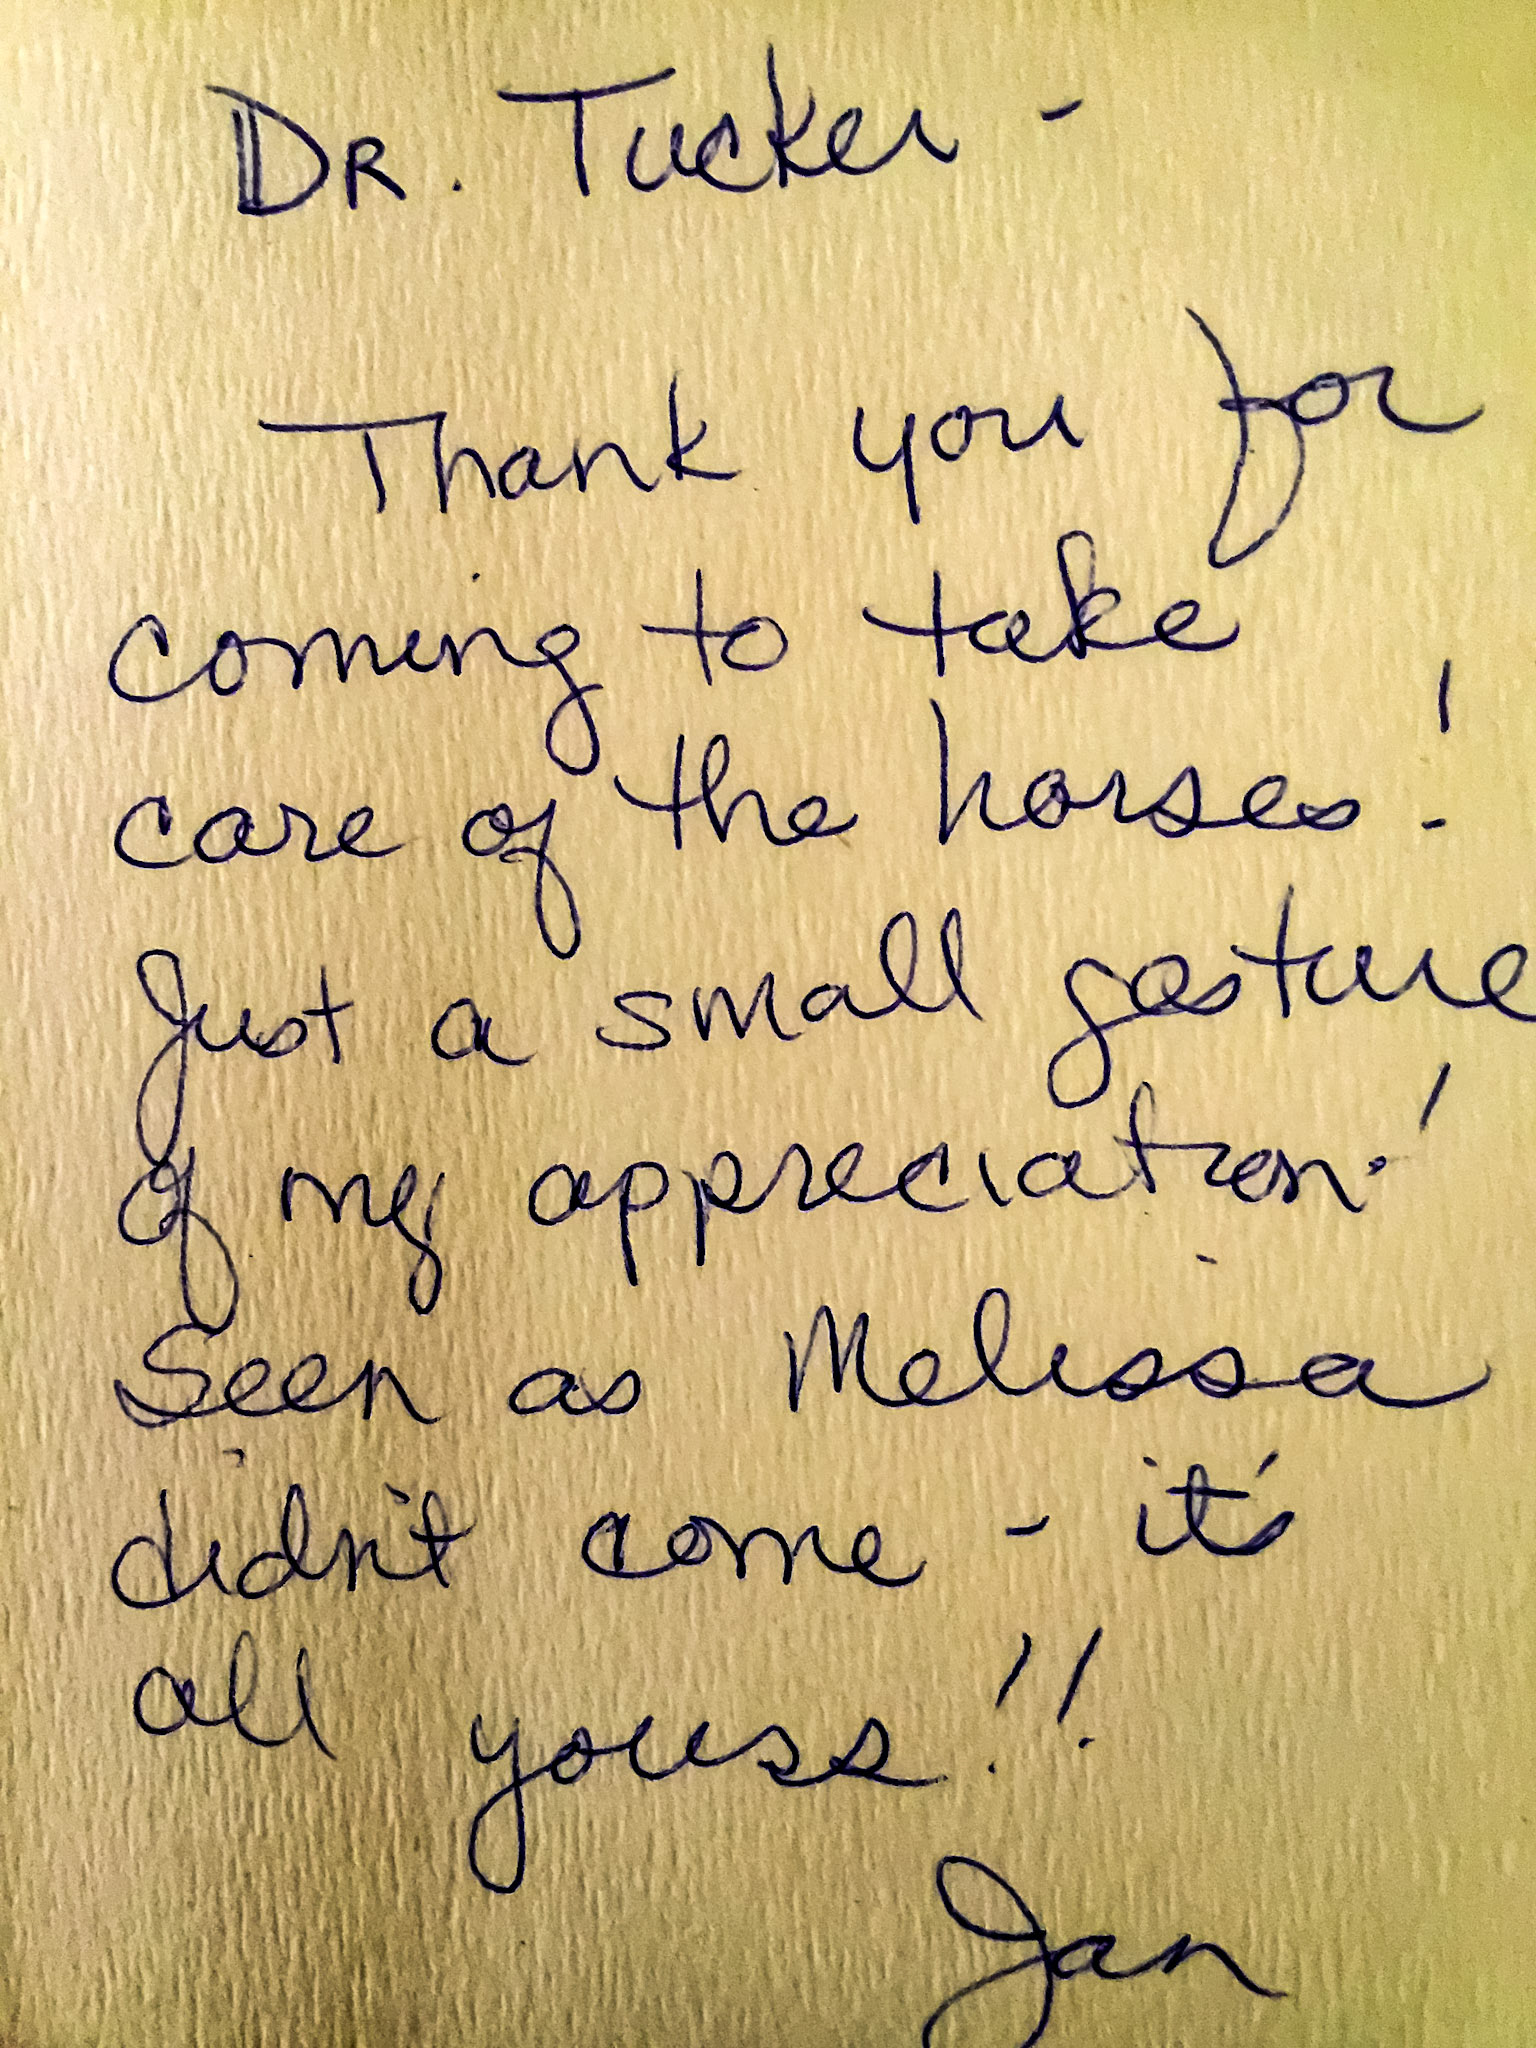 Dr. Tucker -
Thank you for
coming to take
care of the horses!
Just a small gesture
of my appreciation!
Seen as Melissa
didn't come - it's
all yourss!!
Jan